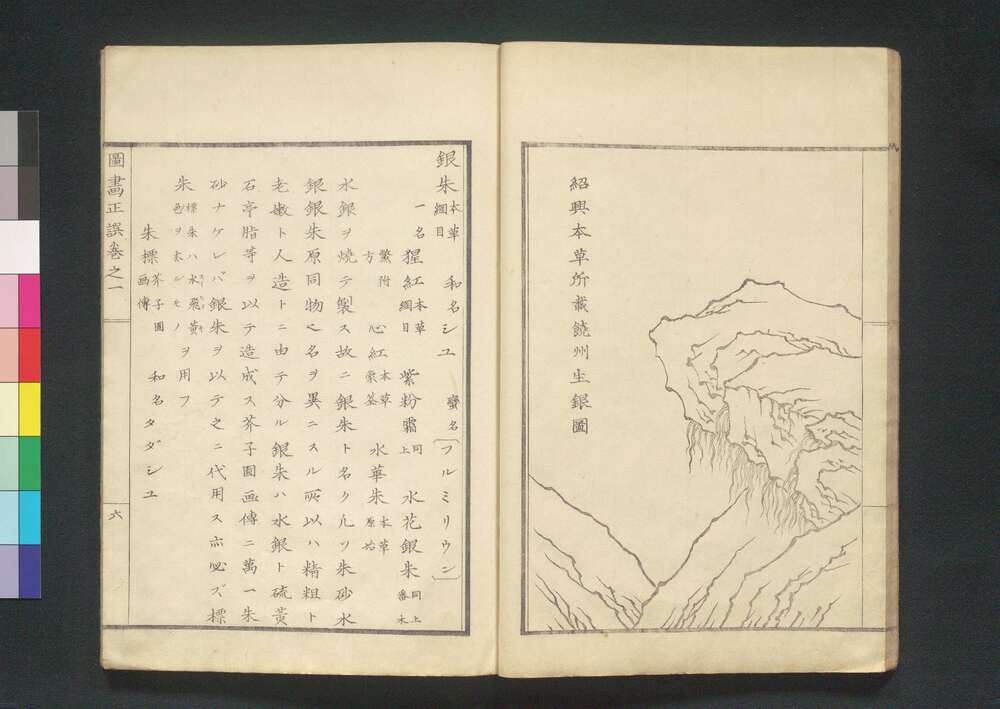 紹興本草所載饒州生銀圖
銀朱 本草綱目 和名シユ 蠻名〔フルミリウン〕
一名猩紅 本草綱目 紫粉霜 同上 水花銀朱 同上
方 心紅 本草 水華朱 本草原始
水銀ヲ燒テ製ス故ニ銀朱ト名ク凡ソ朱砂水
銀銀朱原同物ニ名ヲ異ニスル所以ハ精粗ト
老嫩ト人造トニ由テ分ル銀朱ハ水銀ト硫黄
石亭脂等ヲ以テ造成ス芥子園画傳ニ萬一朱
砂ナケレバ銀朱ヲ以テ之ニ代用ス亦必ズ標
朱 標朱ハ水飛 ヲ用フ
朱標 芥子園画傳 和名タダシユ
圖畵正誤卷之一
六